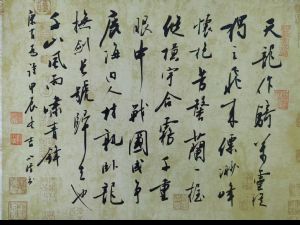 天龍作騎萬靈從
獨立飛來縹緲峰
懷抱芳馨蘭一握
從橫宇合霧千重
眼中戰國成爭
鹿海內人材孰臥龍
撫劍長號歸去也
千山風雨嘯青鋒
康有為詩 甲辰